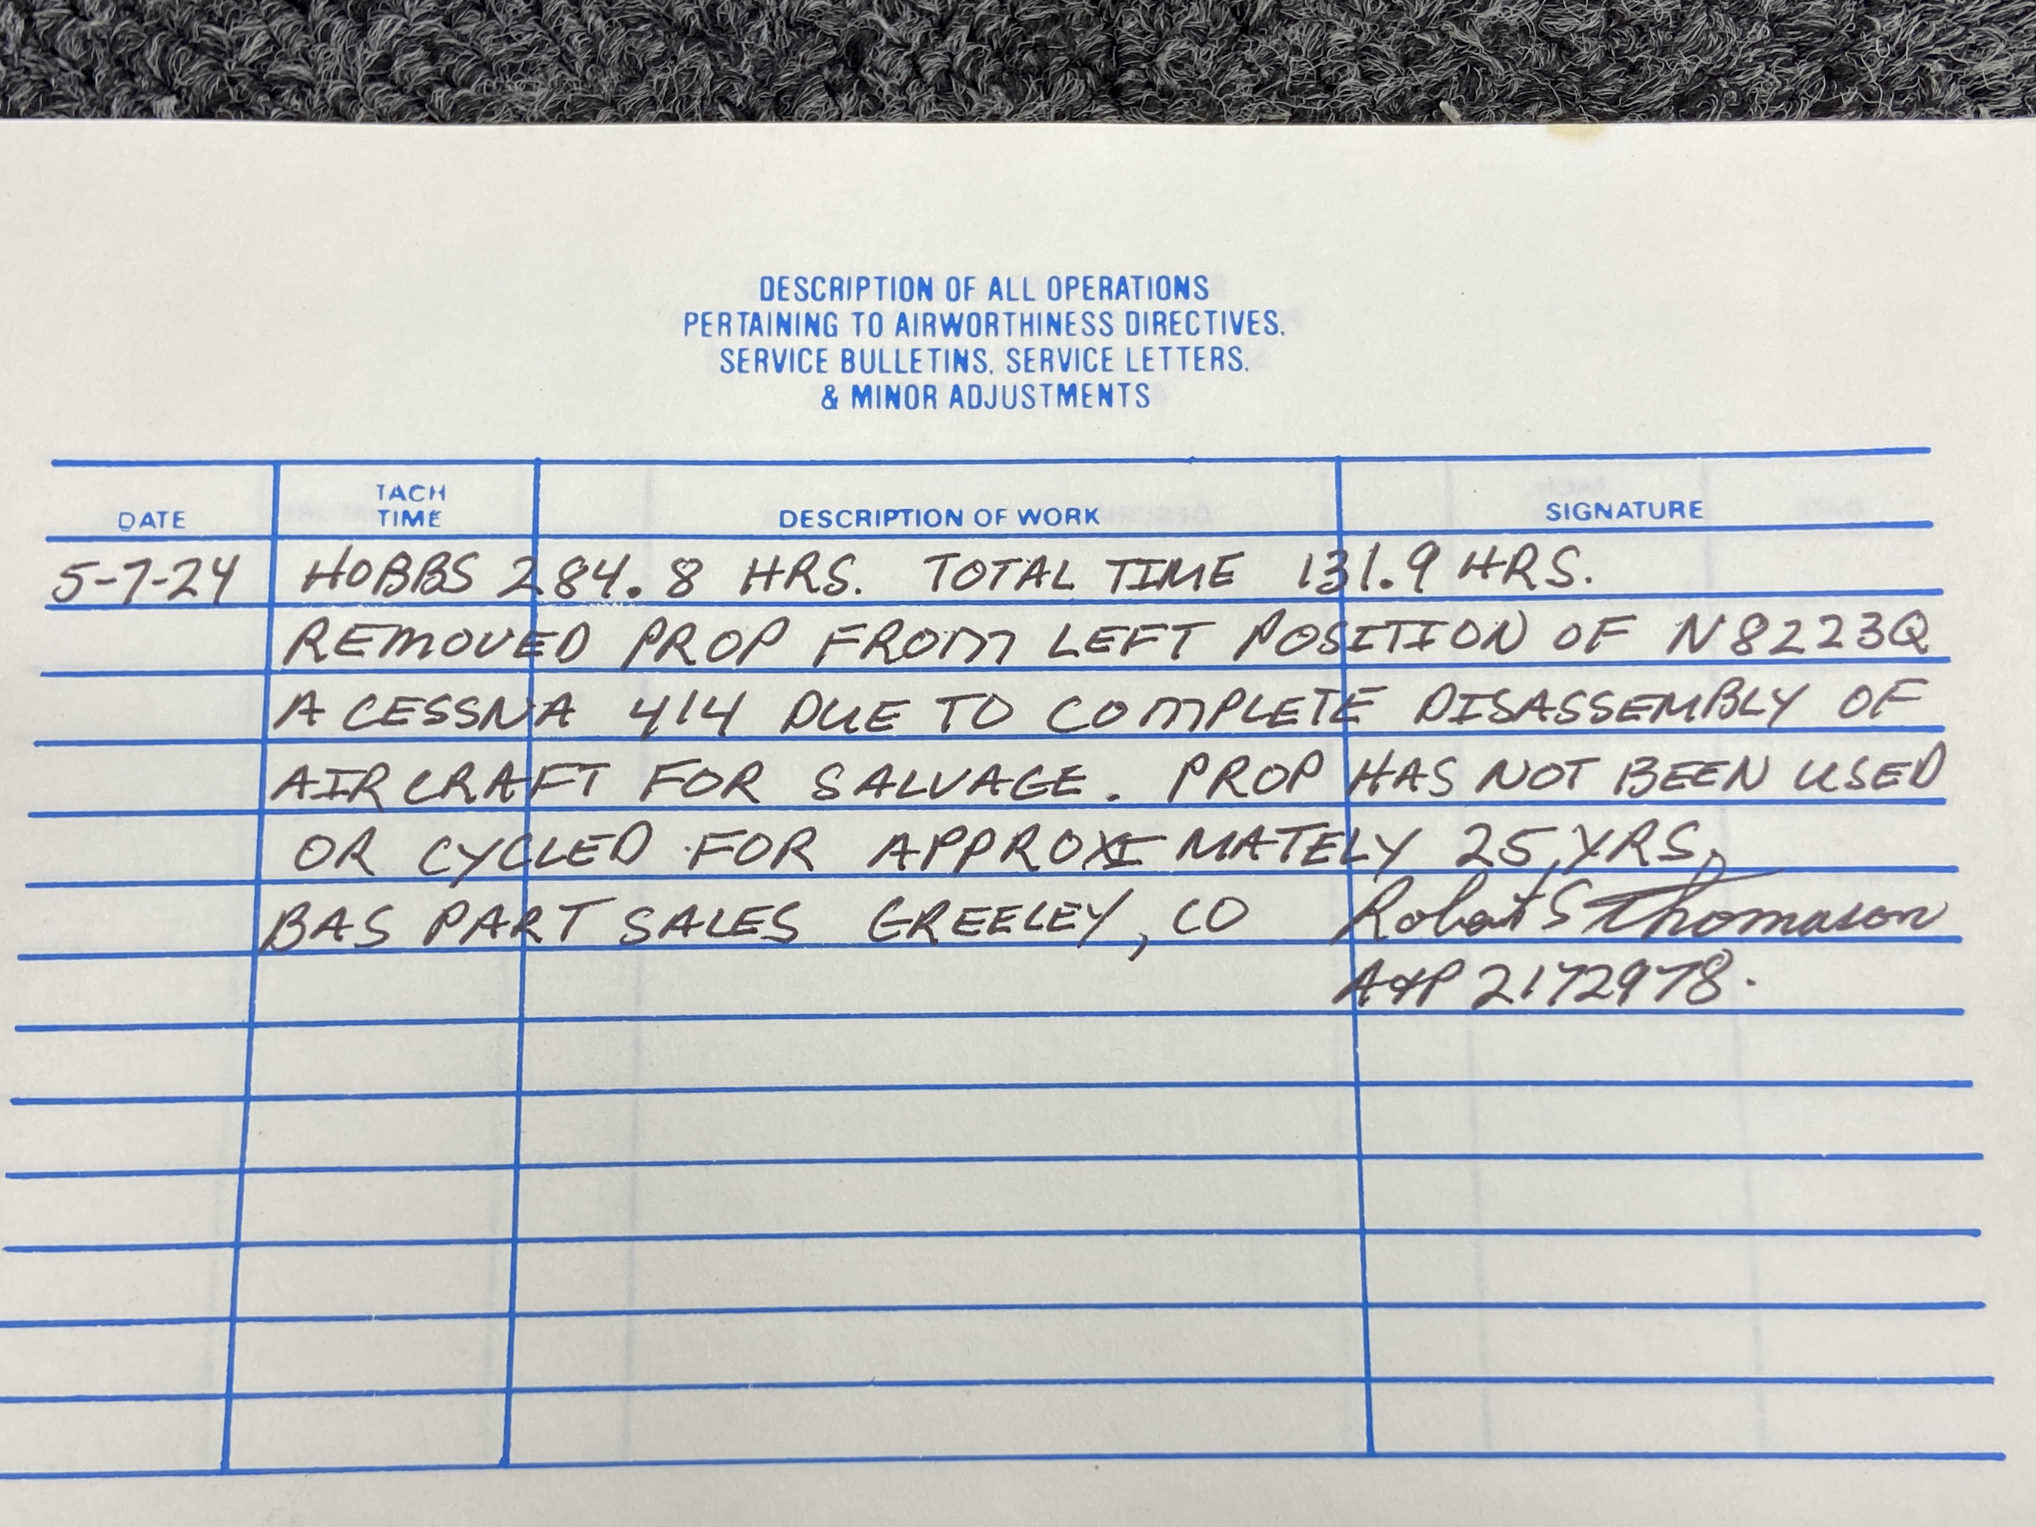 DESCRIPTION OF ALL OPERATIONS
PERTAINING TO AIRWORTHINESS DIRECTIVES,
SERVICE BULLETINS, SERVICE LETTERS,
& MINOR ADJUSTMENTS
DATE TACH TIME DESCRIPTION OF WORK SIGNATURE
5-7-24 HOBBS 284.8 HRS. TOTAL TIME 131.9 HRS.
REMOVED PROP FROM LEFT POSITION OF N8223Q
A CESSNA 414 DUE TO COMPLETE DISASSEMBLY OF
AIRCRAFT FOR SALVAGE. PROP HAS NOT BEEN USED
OR CYCLED FOR APPROXIMATELY 25 YRS.
BAS PART SALES GREELEY, CO Robert S Thomason
A&P 2172978.